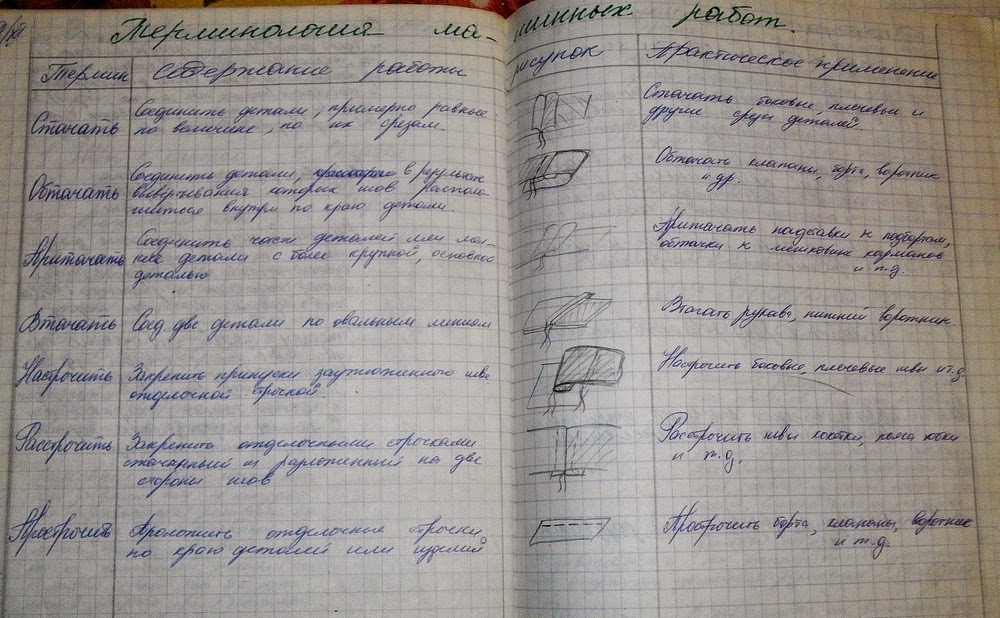 Терминология ма-
шинных работ.
Термин Содержание работы рисунок Практическое применение
Стачать
Соединить детали, примерно равные
по величине, по их срезам.
Стачать боковые, плечевые и
другие срезы деталей.
Обтачать
Соединить детали, в результате
вывёртывания которых шов распола-
гаться внутри по краю детали.
Обтачать клапаны, борта, воротник
и др.
Притачать
Соединить части деталей или мел-
кие детали с более крупной, основной
деталью
Притачать надставки к подбортам,
обтачки к мешковине карманов
и т.д.
Втачать
Соед. две детали по овальным линиям
Втачать рукава, нижний воротник.
Настрочить
Закрепить припуски заутюженного шва
отделочной строчкой.
Настрочить боковые, плечевые швы и т.д
Расстрочить
Закрепить отделочными строчками
стачанный и разложенный на две
стороны шов
Расстрочить швы кокетки, пояса юбки
и т.д.
Прострочить
Проложить отделочные строчки
по краю деталей или изделия
Прострочить борта, клапаны, воротник
и т.д.